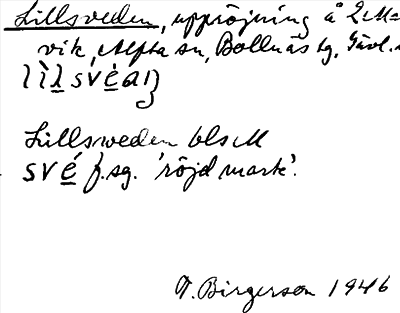 Lillsveden, uppröjning å 2M=
vik, Alfta sn, Bollnäs tg, Gävl.
lìlsvèdɑn
Lillsweden blsM
své f.sg. 'röjd mark'.
T. Birgerson 1946